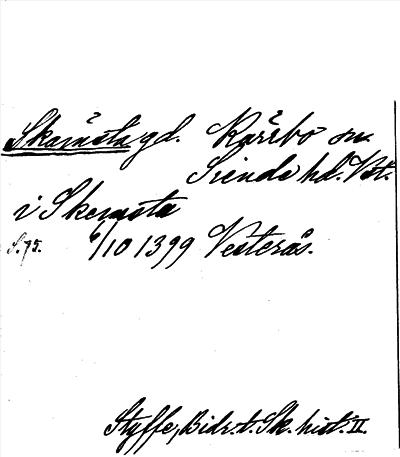 Skämsta gd. Kärrbo sn.
Siende hd. Vst.
i Skemsta
S. 75. 6/10 1399 Vesterås.
Styffe, Bidr. t. Sk. hist. II.